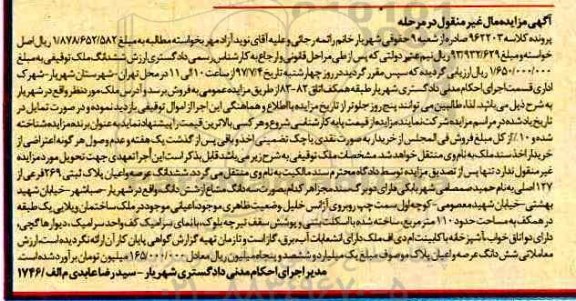 آگهی مزایده مال غیر منقول در مرحله
پرونده کلاسه ۹۶۲۲۰۳ صادره از شعبه ۹ حقوقی شهریار خانم راتمه رجائی وعلیه آقای نوید آزاد مهر بخواسته مطالبه به مبلغ ۱/۸۷۸/۶۵۲/۵۸۲ ریال اصل
خواسته و مبلغ ۹۳/۹۳۲/۶۲۹ ریال نیم عشر دولتی که پس از طی مراحل قانونی و ارجاع به کارشناس رسمی دادگستری ارزش ششدانگ ملک توقیفی به مبلغ
۱/۶۵۰/۰۰۰/۰۰۰ ریال ارزیابی گردیده که سپس مقرر گردید در روز چهارشنبه تاریخ ۹۷/۷/۴ از ساعت ۱۰ الی ۱۱ در محل تهران - شهرستان شهریار - شهرک
اداری قسمت اجرای احکام مدنی دادگستری شهریار طبقه همکف اتاق ۸۳-۸۲ از طریق مزایده عمومی به فروش برسد و آدرس ملک مورد نظر واقع در شهریار
به شرح ذیل می باشد. لذا طالبین می توانند پنج روز جلوتر از تاریخ مزایده با اطلاع و هماهنگی این اجرا از اموال توقیفی بازدید نموده و در صورت تمایل در
تاریخ یاد شده در مراسم مزایده شرکت نمایند مزایده از قیمت پایه کارشناسی شروع و هر کسی بالاترین قیمت را پیشنهاد نماید به عنوان برنده مزایده شناخته
شده و ۱۰٪ از کل مبلغ فروش فی المجلس از خریدار به صورت نقدی یا چک تضمینی اخذ و باقی پس از گذشت یک هفته و عدم وصول هر گونه اعتراضی از
خریدار اخذ سند ملک به نام وی منتقل خواهد شد. مشخصات ملک توقیفی به شرح زیر می باشد قابل ذکر است این اجرا تعهدی جهت تحویل مورد مزایده
غیر منقول ندارد تنها پس از تصدیق مزایده توسط دادگاه محترم سند مالکیت به نام وی منتقل می گردد. ششدانگ عرصه و اعیان پلاک ثبتی ۲۶۹ فرعی از
۱۲۷ اصلی به نام حمید صمصامی شهربابکی دارای دو برگ سند مجزا هر کدام بصورت سه دانگ مشاع از شش دانگ واقع در شهریار - صباشهر - خیابان شهید
بهشتی - خیابان شهید معصومی - کوچه اول سمت چپ روبروی آژانس خلیل وضعیت ظاهری موجود اعیانی موجود در ملک ساختمان ویلایی یک طبقه
در همکف به مساحت حدود ۱۱۰ متر مربع، ساخته شده با اسکلت بتنی و پوشش سقف تیرچه بلوک، بنمای سرامیک کف واحد سرامیک، دیوارها گچی،
دارای دو اتاق خواب، آشپزخانه با کابینت ام دی اف ملک دارای انشعابات آب، برق، گاز است و تا زمان تهیه گزارش گواهی پایان کار آن ارائه نگردیده است. ارزش
معاملاتی شش دانگ عرصه و اعیان پلاک موصوف مبلغ یک میلیارد و ششصد و پنجاه میلیون ریال معادل ۱۶۵/۰۰۰/۰۰۰ میلیون تومان برآورد شده است.
مدیر اجرای احکام مدنی دادگستری شهریار - سید رضا عابدی م الف / ۱۷۴۶